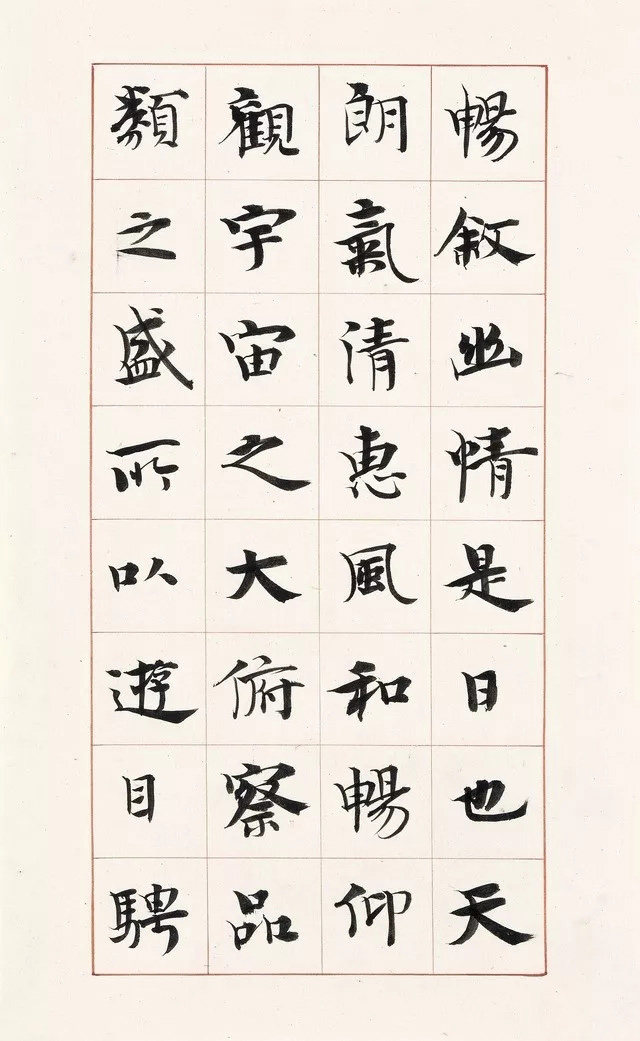 暢敘幽情是日也天
朗氣清惠風和暢仰
觀宇宙之大俯察品
類之盛所以遊目騁